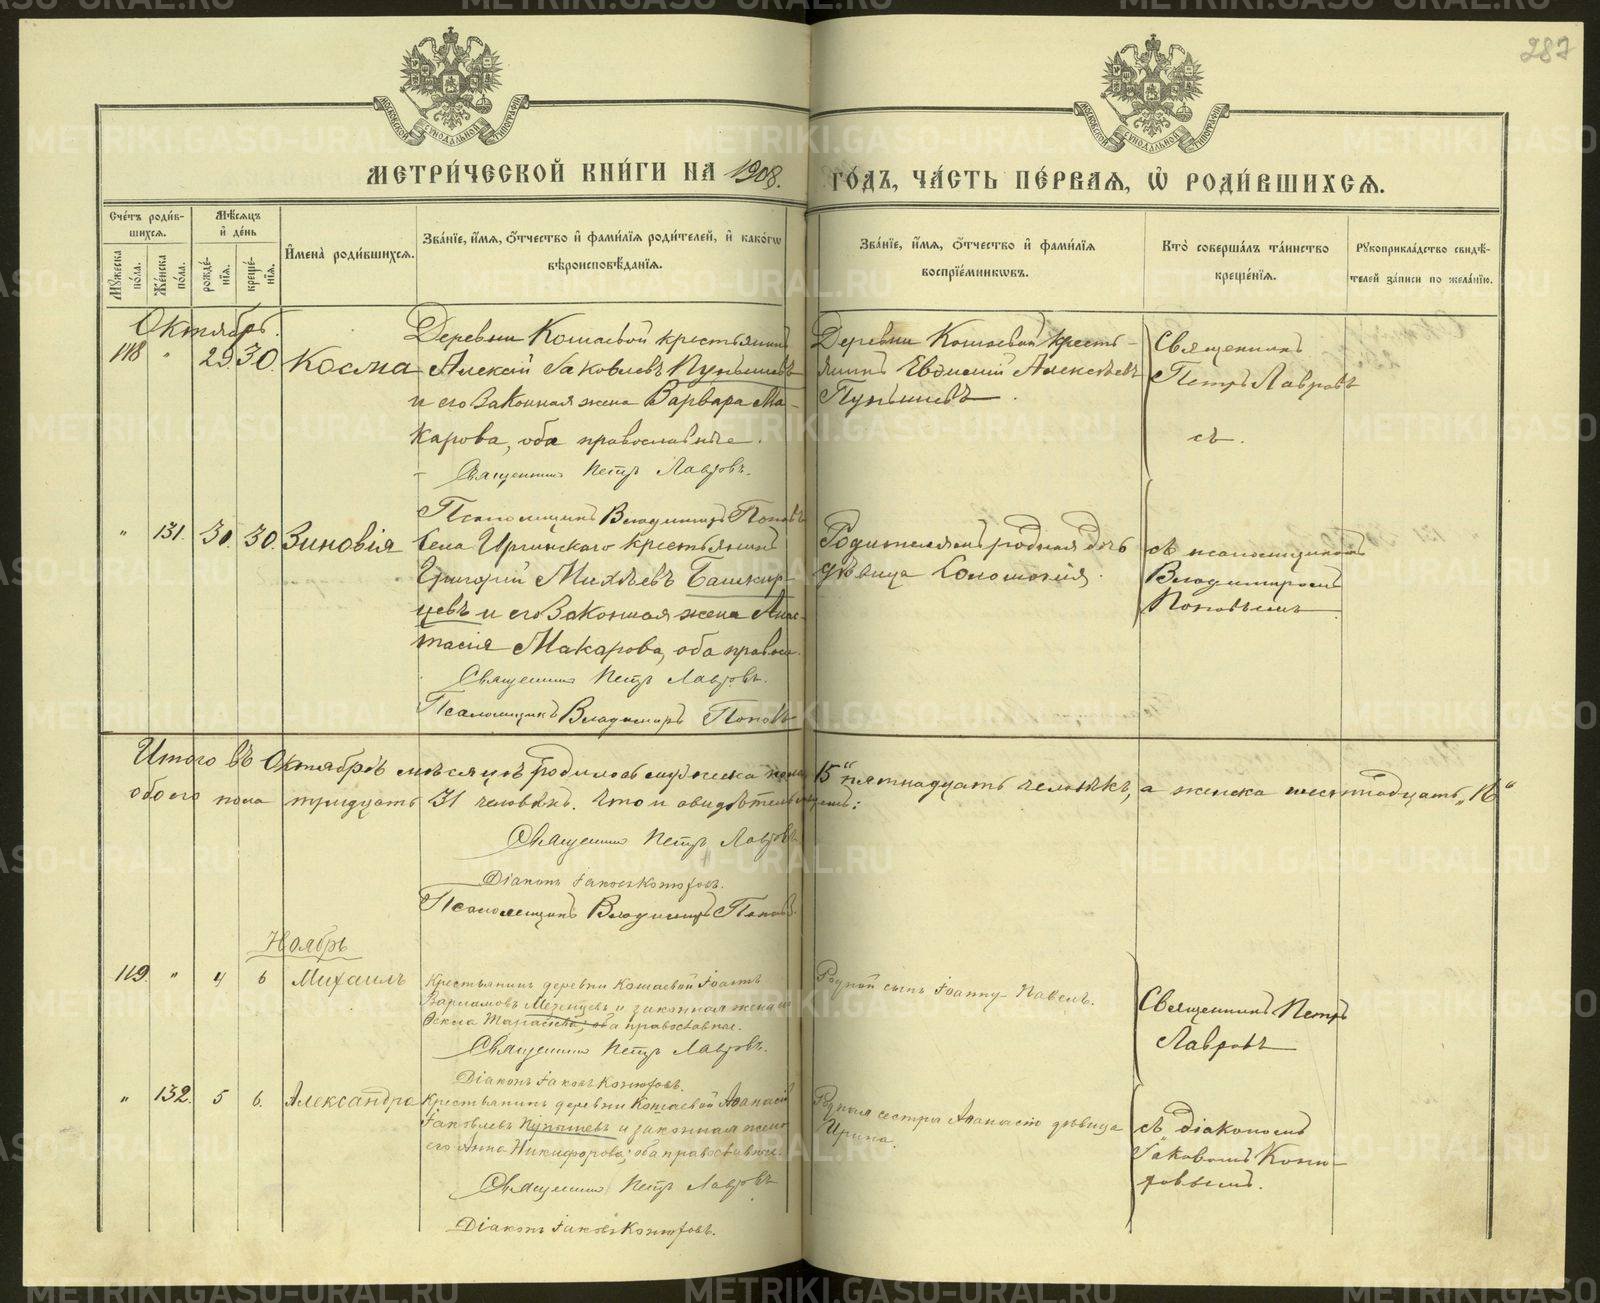 287
МОСКОВСКОЙ СѴНОДАЛЬНОЙ ТИПОГРАФІИ
МОСКОВСКОЙ СѴНОДАЛЬНОЙ ТИПОГРАФІИ
МЕТРИ́ЧЕСКОЙ КНИ́ГИ НА 1908. ГО́ДЪ, ЧА́СТЬ ПЕ́РВАѦ, Ѡ҆ РОДИ́ВШИХСѦ.
Сче́тъ роди́в-
шихсѧ.
Мꙋ́жеска по́ла.
Же́нска по́ла.
Мѣ́сѧцъ и҆ де́нь
рожде́-нїѧ.
креще́-нїѧ.
И҆мена̀ роди́вшихсѧ.
Зва́нїе, и҆́мѧ, ѻ҆́тчество и҆ фами́лїѧ роди́телей, и҆ како́гѡ
вѣроисповѣ́данїѧ.
Зва́нїе, и҆́мѧ, ѻ҆́тчество и҆ фами́лїѧ
воспрїе́мникѡвъ.
Кто̀ соверша́лъ та́инство
креще́нїѧ.
Рꙋкоприкла́дство свидѣ́-
телей за́писи по жела́нїю.
Октябрь.
118 " 29 30. Косма
Деревни Кошаевой крестьянинъ
Алексій Іаковлевъ Пупышевъ
и его законная жена Варвара Ма-
карова, оба православные.
Священникъ Петръ Лавровъ.
Псаломщикъ Владимиръ Поповъ
Деревни Кошаевой кресть-
янинъ Евдокий Алексѣевъ
Пупышевъ.
Священникъ
Петръ Лавровъ
съ.
" 131. 30. 30. Зиновія
Села Иргинскаго крестьянинъ
Григорий Михѣевъ Башкир-
цевъ и его законная жена Анас-
тасія Макарова, оба правосл.
Священникъ Петръ Лавровъ.
Псаломщикъ Владимиръ Поповъ
Родителямъ родная дочь
дѣвица Соломонія.
съ псаломщикомъ
Владимиромъ
Поповымъ
Итого въ Октябрѣ мѣсяцѣ родилось мужеска пола 15 "пятнадцать человѣкъ, а женска шестнадцать „16“
обоего пола тридцать 31 человѣкъ. Что и свидѣтельствуемъ:
Священникъ Петръ Лавровъ
Діаконъ Іаковъ Конюховъ.
Псаломщикъ Владимиръ Поповъ.
Ноябрь
119. " 4 6 Михаилъ
Крестьянинъ деревни Кошаевой Іоаннъ
Варламовъ Мезенцевъ и законная жена его
Ѳекла Тарасова; оба православные.
Священникъ Петръ Лавровъ.
Діаконъ Іаковъ Конюховъ.
Родной сынъ Іоанну Павелъ.
Священникъ Петръ
Лавровъ
" 132. 5 6. Александра
Крестьянинъ деревни Кошаевой Аѳанасій
Іаковлевъ Пупышевъ и законная жена
его Анна Никифорова; оба православные.
Священникъ Петръ Лавровъ
Діаконъ Іаковъ Конюховъ.
Родная сестра Аѳанасію дѣвица
Ирина.
съ діакономъ
Іаковомъ Коню-
ховымъ.
METRIKI.GASO-URAL.RU